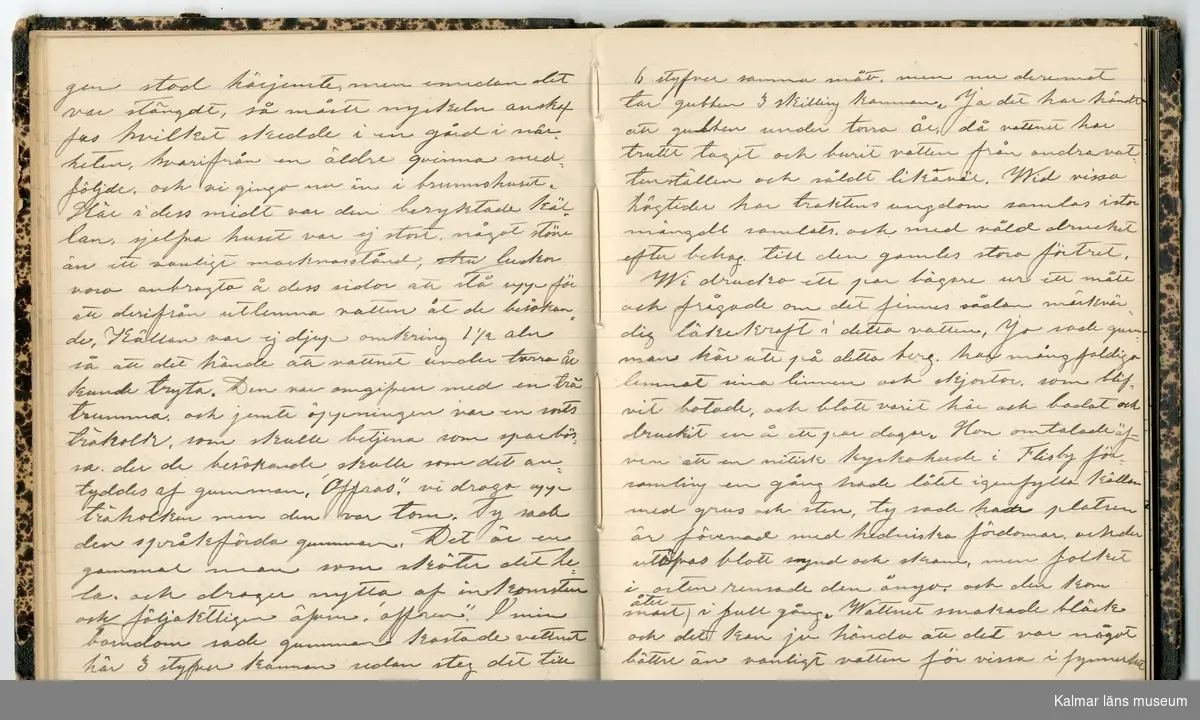 gen stod härjemte, men emedan det
var stängdt, så måste nyckeln anskaf
fas hvilket skedde i en gård i när-
heten, hvarifrån en äldre qvinna med-
följde. och vi gingo nu in i brunnshuset.
Här i dess midt var den beryktade käl-
lan, sjelfva huset var ej stort, något större
än ett vanligt marknasstånd, luckor
voro anbragta å dess sidor att stå uppe för
att derifrån utlemna vatten åt de besökan-
de, Källan var ej djup omkring 1½ aln
så att det hände att vattnet under torra år
kunde tryta. Den var omgifven med en trä
trumma. och jemte öppningen var en sorts
träkolk, som skulle betjena som sparbös-
sa. der de besökande skulle som det an-
tyddes af gumman, "Offras". vi drogo upp
träkolken men den var tom. Ty sade
den språkförda gumman. Det är en
gammal man som sköter det he-
la. och drager nytta af inkomsten
och följaktligen äfven "offren". I min
barndom sade gumman kostade vattnet
här 3 styfver kannan sedan steg det till
6 styfver samma mått. men nu deremot
tar gubben 3 skilling kannan. Ja det har händt
att gubben under torra år, då vattnet har
trutit tagit och burit vatten från andra vat-
tenställen och såldt likaväl. Wid vissa
högtider har traktens ungdom samlas i stor
mängdt samlats. och med våld druckit
efter behag till den gamles stora förtret.
Wi drucko ett par bägare ur ett mått
och frågade om det finnes sådan märkvär-
dig läkekraft i detta vatten, Jo sade gum-
man här ute på detta berg. har mångfaldiga
lemnat sina linnen och skjortor. som blif-
vit botade, och blott varit här och badat och
druckit en å ett par dagar. Hon omtalade äf-
ven att en nitisk kyrkoherde i Flisby för-
samling en gång hade låtit igenfylla källan
med grus och sten, ty sade han platsen
är förenad med hedniska fördomar. och der
utöfvas blott synd och skam, men folket
i orten rensade den ånyo. och den kom
åter
snart, i full gång. Wattnet smakade bläck
och det kan ju hända att det var något
bättre än vanligt vatten för vissa i synnerhet
Kalmar läns museum